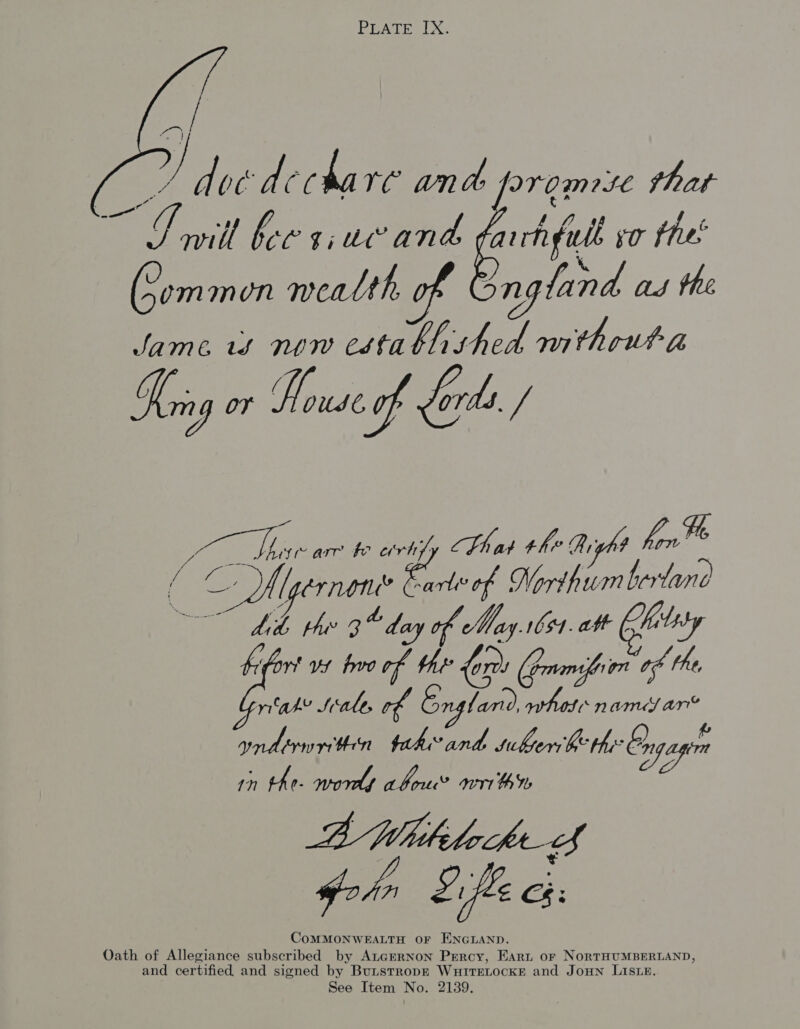 PLATE IX.
I doe declare and promise that
I will bee true and faithfull to the
Common wealth of England as the
same is now established without a
King or House of Lords. /
These are to certify That the Right hon ble
Algernone Earle of Northumberland
did the 3d day of May. 1651. att Chelsey
before vs two of the lords Commission rs of the
Greate seale of England, whose names are
vnderwritten take and subscribe the Engagem t
in the words aboue written
B Whitelocke CS
John Lisle CS:
COMMONWEALTH OF ENGLAND.
Oath of Allegiance subscribed by ALGERNON PERCY, EARL OF NORTHUMBERLAND,
and certified and signed by BULSTRODE WHITELOCKE and JOHN LISLE.
See Item No. 2139.